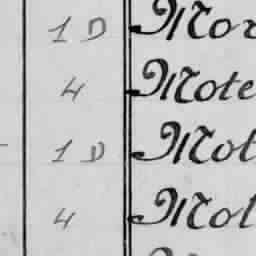 1 D Mor
4 Mote
1 D Mot
4 Mot